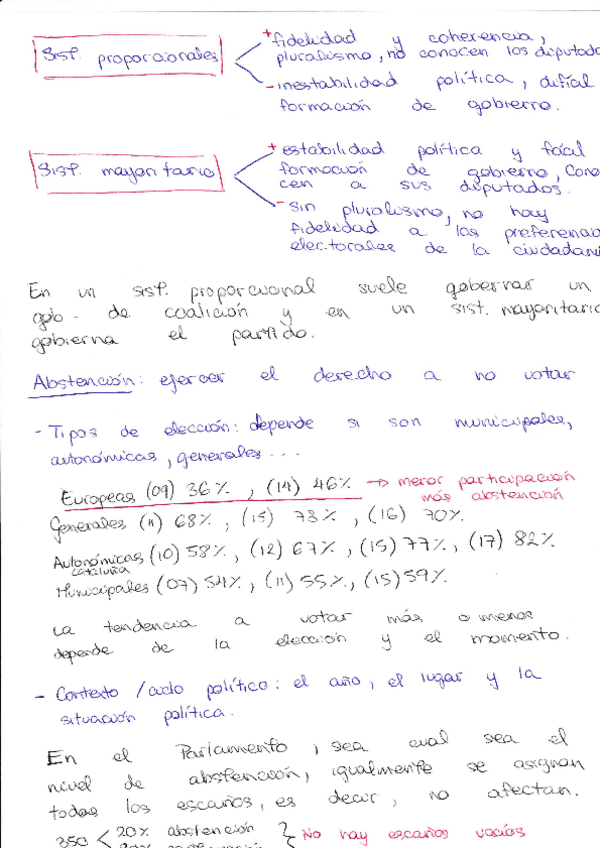 Sist. proporcionales
+ fidelidad y coherencia,
pluralismo, no conocen los diputado
- inestabilidad política, difícil
formación de gobierno.
Sist. mayoritario
+ estabilidad política y fácil
formación de gobierno, cono
cen a sus diputados.
- sin pluralismo, no hay
fidelidad a las preferencia
electorales de la ciudadaní
En un sist. proporcional suele gobernar un
gob. de coalición y en un sist. mayoritario
gobierna el partido.
Abstención: ejercer el derecho a no votar
- Tipos de elección: depende si son municipales,
autonómicas, generales...
Europeas (09) 36%, (14) 46% → menor participación
más abstención
Generales (11) 68%, (15) 73%, (16) 70%.
Autonómicas (10) 58%, (12) 67%, (15) 77%, (17) 82%.
Cataluña
Municipales (07) 54%, (11) 55%, (15) 59%.
La tendencia a votar más o menos
depende de la elección y el momento.
- Contexto / ciclo político: el año, el lugar y la
situación política.
En el Parlamento, sea cual sea el
nivel de abstención, igualmente se asignan
todos los escaños, es decir, no afectan.
350 < 20% abstención } No hay escaños vacíos